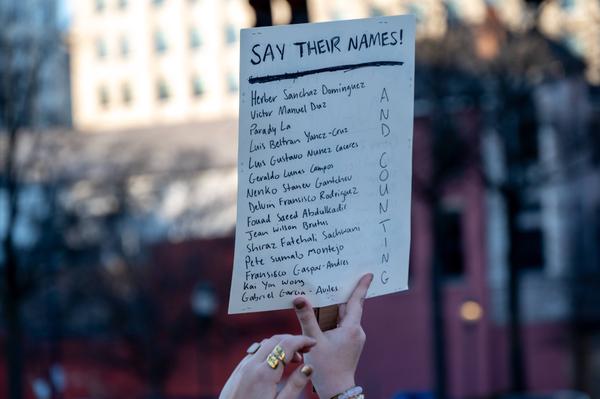 SAY THEIR NAMES!
Herber Sanchaz Domínguez
Victor Manuel Diaz
Parady La
Luis Beltran Yanez-Cruz
Luis Gustavo Nunez Caceres
Geraldo Lunas Campos
Nenko Stanev Gantchev
Delvin Francisco Rodriguez
Fouad Saeed Abdulkadir
Jean Wilson Brutus
Shiraz Fatehali Sachwani
Pete Sumalo Montejo
Fransisco Gaspar-Andres
Kai Yin Wong
Gabriel Garcia-Aviles
AND COUNTING